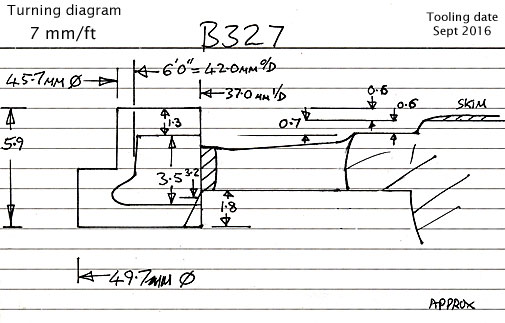 Turning diagram
7 mm/ft
B327
Tooling date
Sept 2016
6'0" = 42.0mm O/D
45.7mm Ø
37.0mm I/D
0.6
0.6
SKIM
1.3
0.7
5.9
3.5
3.2
1.8
49.7mm Ø
APPROX